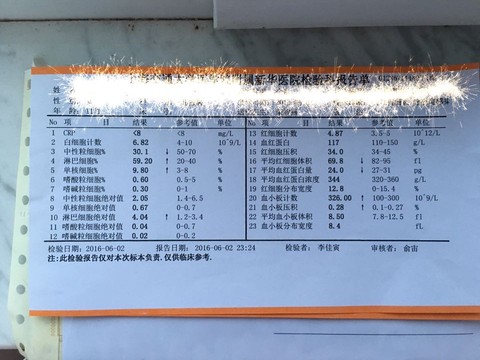 新华医院检验科报告单
No 项 目 结果 参考值 单位 No 项 目 结果 参考值 单位
1 CRP <8 <8 mg/L 13 红细胞计数 4.87 3.5-5 10^12/L
2 白细胞计数 6.82 4-10 10^9/L 14 血红蛋白 117 110-150 g/L
3 中性粒细胞% 30.1 ↓ 50-70 % 15 红细胞压积 34.0 34-45 %
4 淋巴细胞% 59.20 ↑ 20-40 % 16 平均红细胞体积 69.8 ↓ 82-95 fl
5 单核细胞% 9.80 ↑ 3-8 % 17 平均血红蛋白量 24.0 ↓ 27-31 pg
6 嗜酸粒细胞% 0.60 0.5-5 % 18 平均血红蛋白浓度 344 320-360 g/L
7 嗜碱粒细胞% 0.30 0-1 % 19 红细胞分布宽度 12.8 0-15.4 %
8 中性粒细胞绝对值 2.05 1.4-6.5 20 血小板计数 326.00 ↑ 100-300 10^9/L
9 单核细胞绝对值 0.67 0-0.7 21 血小板压积 0.28 ↑ 0.1-0.27 %
10 淋巴细胞绝对值 4.04 ↑ 1.2-3.4 22 平均血小板体积 8.50 7.8-12.5 fl
11 嗜酸粒细胞绝对值 0.04 0-0.7 23 血小板分布宽度 8.4 fL
12 嗜碱粒细胞绝对值 0.02 0-0.2
检验日期:2016-06-02 报告日期:2016-06-02 23:24 检验者: 李佳寅 审核者: 俞宙
注:此检验报告仅对本次标本负责.仅供临床参考.